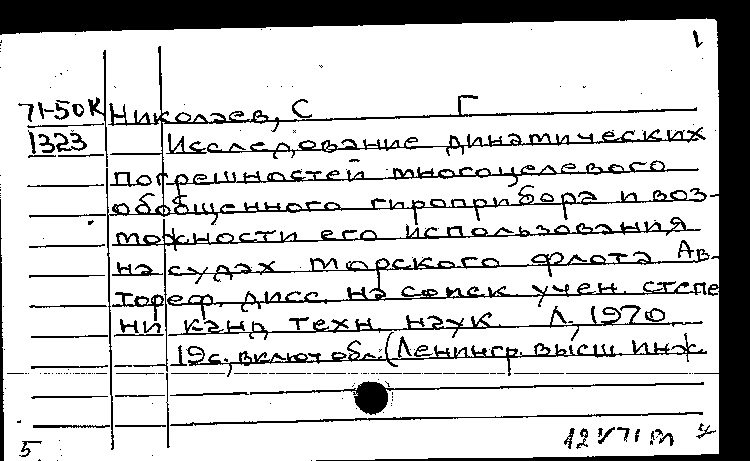 1
71-50К Николаев, С Г
1323 Исследование динамических
погрешностей многоцелевого
обобщенного гироприбора и воз-
можности его использования
на судах морского флота Ав-
тореф. дисс. на соиск учен. степе
ни канд техн. наук. Л, 1970
19с, включ обл. (Ленингр. высш. инж.
12 V 71
5